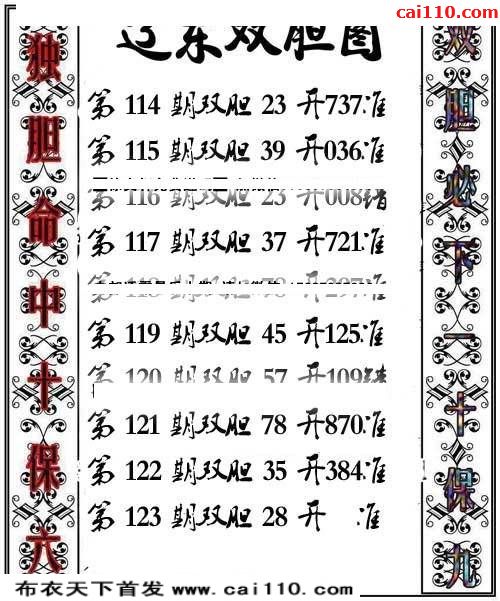 cai110.com
辽东双胆图
独胆命中十保六
第 114 期双胆 23 开737准
第 115 期双胆 39 开036准
第 116 期双胆 23 开008错
第 117 期双胆 37 开721准
第 119 期双胆 45 开125准
第 120 期双胆 57 开109错
第 121 期双胆 78 开870准
第 122 期双胆 35 开384准
第 123 期双胆 28 开 准
双胆必下一十保九
布衣天下首发 www.cai110.com